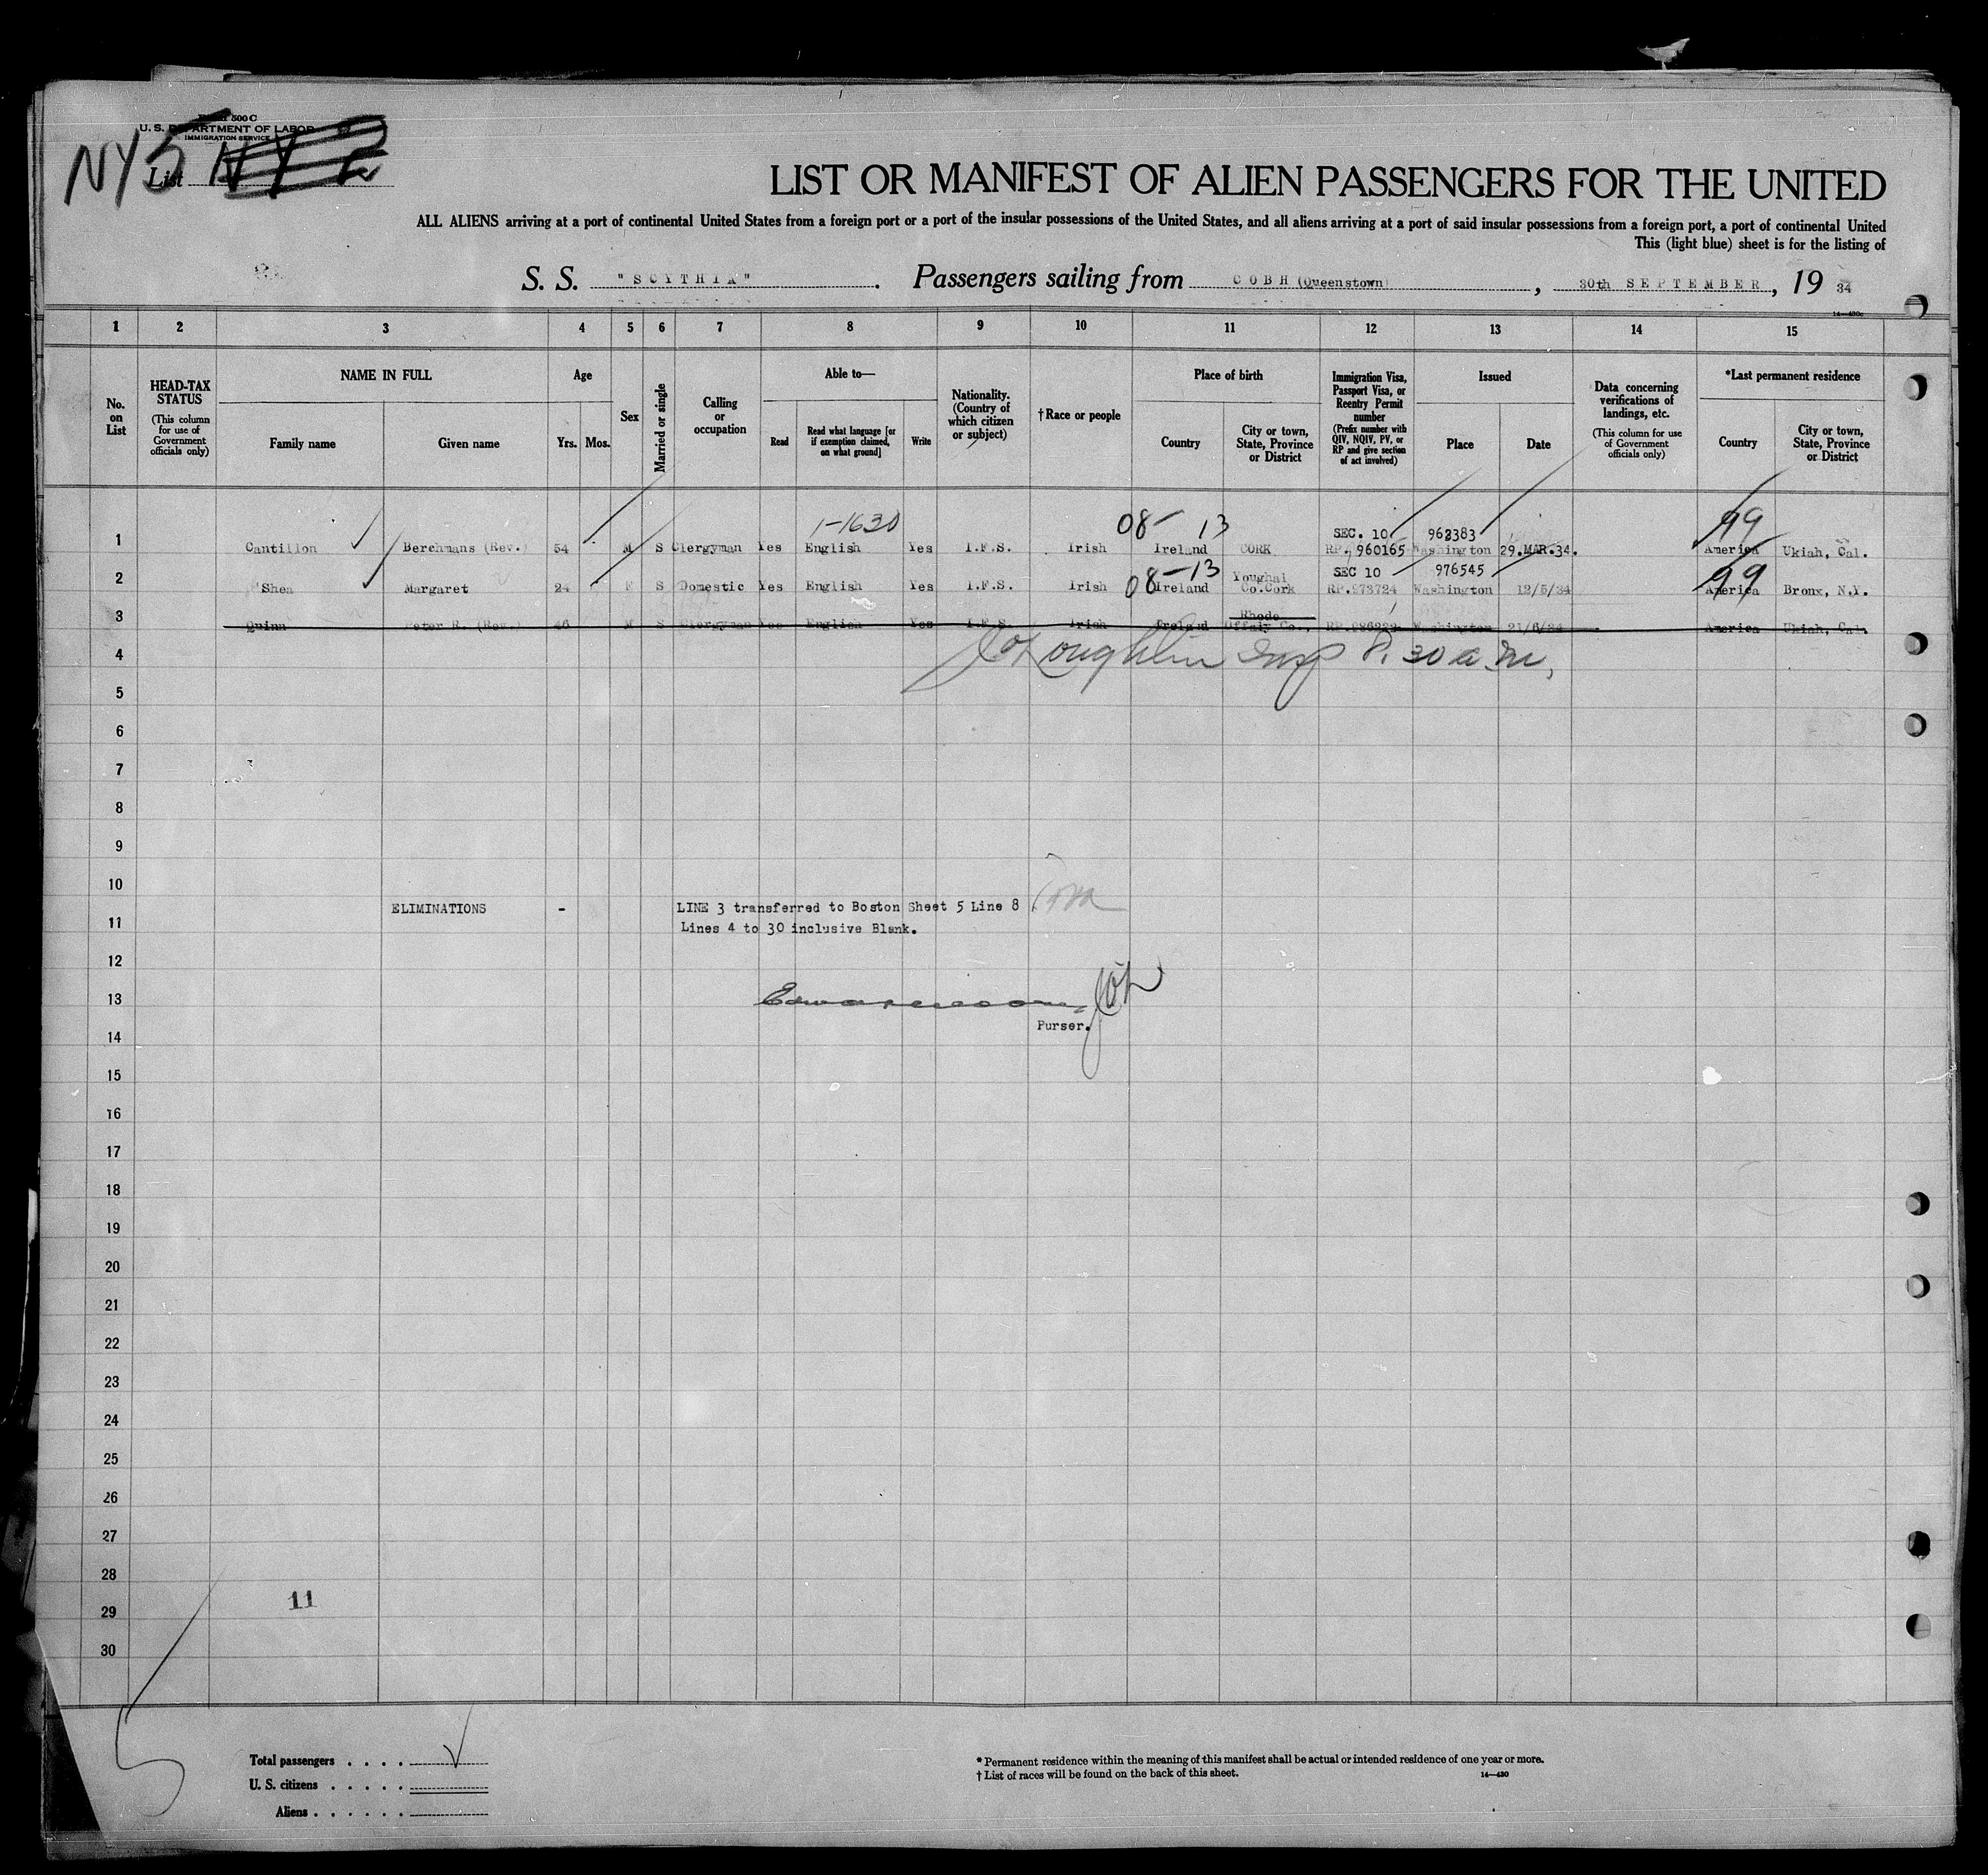 Form 500 C
U. S. DEPARTMENT OF LABOR
IMMIGRATION SERVICE
NY 5
List NY
LIST OR MANIFEST OF ALIEN PASSENGERS FOR THE UNITED
ALL ALIENS arriving at a port of continental United States from a foreign port or a port of the insular possessions of the United States, and all aliens arriving at a port of said insular possessions from a foreign port, a port of continental United
This (light blue) sheet is for the listing of
S. S. "SCYTHIA" . Passengers sailing from COBH (Queenstown) , 30th SEPTEMBER , 19 34
14—430c
1 2 3 4 5 6 7 8 9 10 11 12 13 14 15
No. on List
HEAD-TAX STATUS (This column for use of Government officials only)
NAME IN FULL
Family name
Given name
Age
Yrs. Mos.
Sex
Married or single
Calling or occupation
Able to—
Read
Read what language [or if exemption claimed, on what ground]
Write
Nationality. (Country of which citizen or subject)
†Race or people
Place of birth
Country
City or town, State, Province or District
Immigration Visa, Passport Visa, or Reentry Permit number (Prefix number with QIV, NQIV, PV, or RP and give section of act involved)
Issued
Place
Date
Data concerning verifications of landings, etc. (This column for use of Government officials only)
*Last permanent residence
Country
City or town, State, Province or District
1-1630 08- 13 SEC. 10 962383 99
1 Cantillon Berchmans (Rev.) 54 M S Clergyman Yes English Yes I.F.S. Irish Ireland CORK RP. 960165 Washington 29.MAR.34. America Ukiah, Cal.
08-13 SEC 10 976545 99
2 Shea Margaret 24 F S Domestic Yes English Yes I.F.S. Irish Ireland Youghal Co.Cork RP.973724 Washington 12/5/34 America Bronx, N.Y.
3 Quinn Peter R. (Rev.) 46 M S Clergyman Yes English Yes I.F.S. Irish Ireland Rhode Offaly Co., Washington 21/6/34 America Ukiah, Cal.
4 Loughlin Insp 8.30 a.m.
5
6
7
8
9
10
ELIMINATIONS - LINE 3 transferred to Boston Sheet 5 Line 8
11 Lines 4 to 30 inclusive Blank.
12
13
Purser.
14
15
16
17
18
19
20
21
22
23
24
25
26
27
28
11
29
30
Total passengers . . . .
U. S. citizens . . . . .
Aliens . . . . . .
* Permanent residence within the meaning of this manifest shall be actual or intended residence of one year or more.
† List of races will be found on the back of this sheet.
14—430